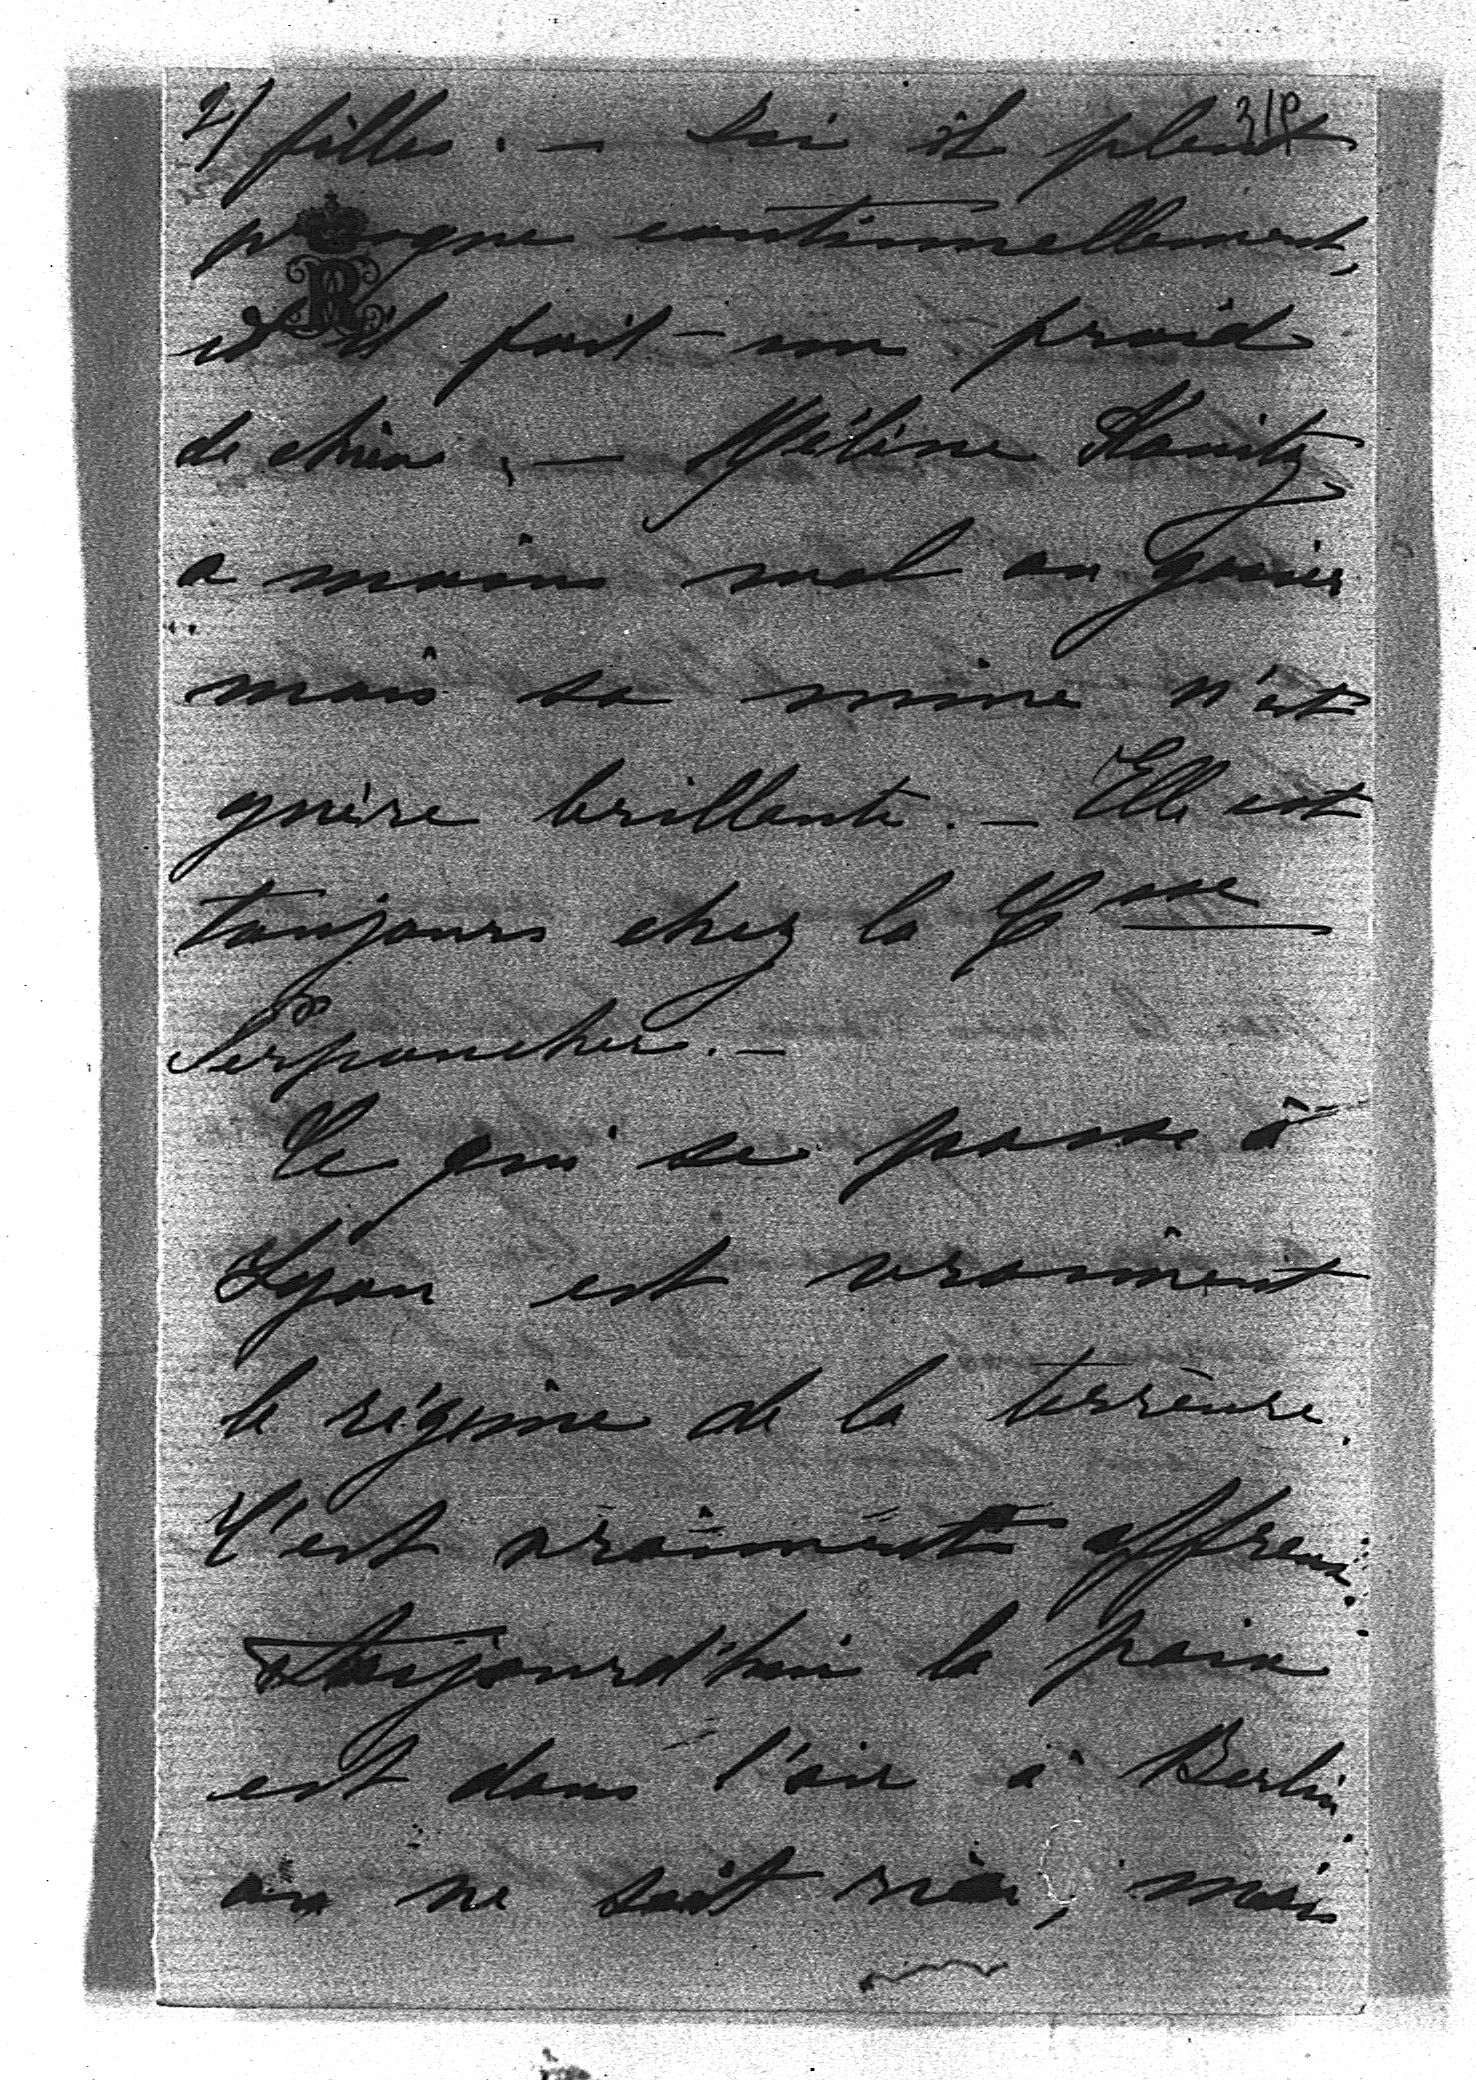 2/ filles. — Ici il pleut
presque continuellement,
et il fait un froid
de chien. — Hélène Kanitz
a moins mal au gosier
mais sa mine n'est
guère brillante. — Elle est
toujours chez la Ctsse
Perponcher. —
Ce qui se passe à
Lyon est vraiment
le régime de la terreure.
C'est vraiment affreux.
Aujourd'hui la paix
est dans l'air à Berlin.
on ne sait rien, mais